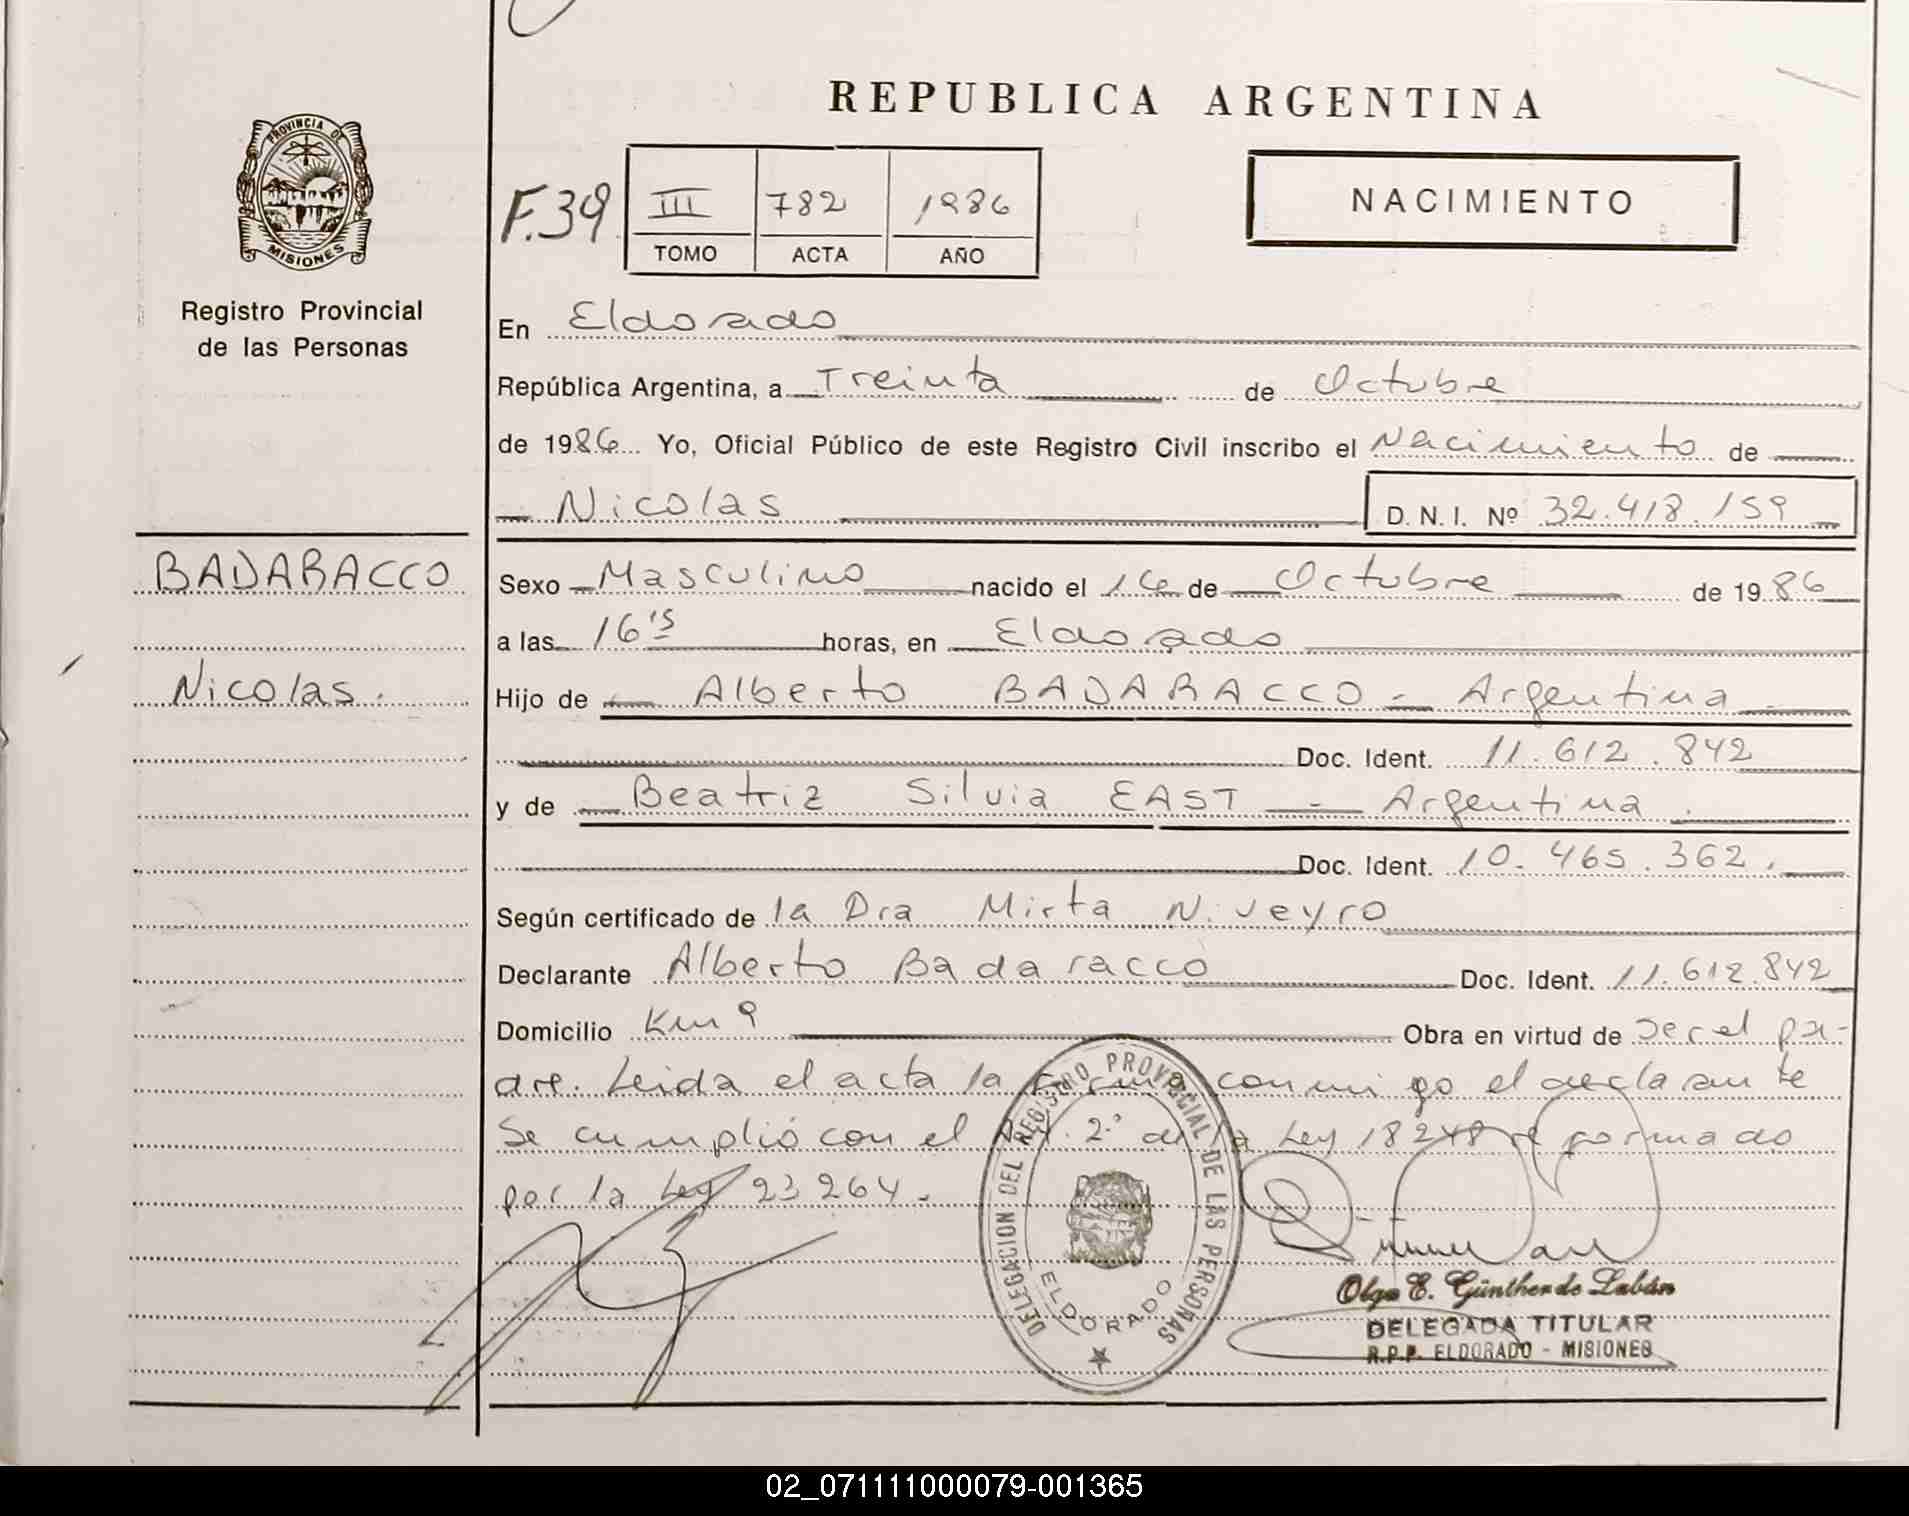 REPUBLICA ARGENTINA
PROVINCIA DE MISIONES
Registro Provincial
de las Personas
F.39
III 782 1986
TOMO ACTA AÑO
NACIMIENTO
En Eldorado
República Argentina, a Treinta de Octubre
de 1986 Yo, Oficial Público de este Registro Civil inscribo el Nacimiento de
Nicolas D. N. I. Nº 32.418.159
BADARACCO
Nicolas.
Sexo Masculino nacido el 16 de Octubre de 1986
a las 16 15 horas, en Eldorado
Hijo de Alberto BADARACCO - Argentina
Doc. Ident. 11.612.842
y de Beatriz Silvia EAST - Argentina.
Doc. Ident. 10.465.362.
Según certificado de la Dra Mirta N. Veyro
Declarante Alberto Badaracco Doc. Ident. 11.612.842
Domicilio Km 9 Obra en virtud de ser el pa-
dre. Leida el acta la firma conmigo el declarante
Se cumplió con el Art. 2° de la Ley 18248 reformado
por la Ley 23264.
DELEGACION DEL REGISTRO PROVINCIAL DE LAS PERSONAS
ELDORADO
Olga E. Günther de Labán
DELEGADA TITULAR
R.P.P. ELDORADO - MISIONES
02_071111000079-001365